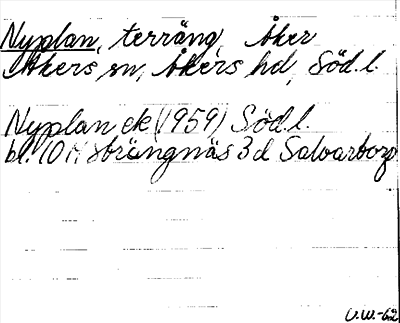 Nyplan, terräng, Åker
Åkers sn, Åkers hd, Söd. l.
Nyplan ek (1959) Söd. l.
bl. 10 H Strängnäs 3d Salvartorp
U.W.-62